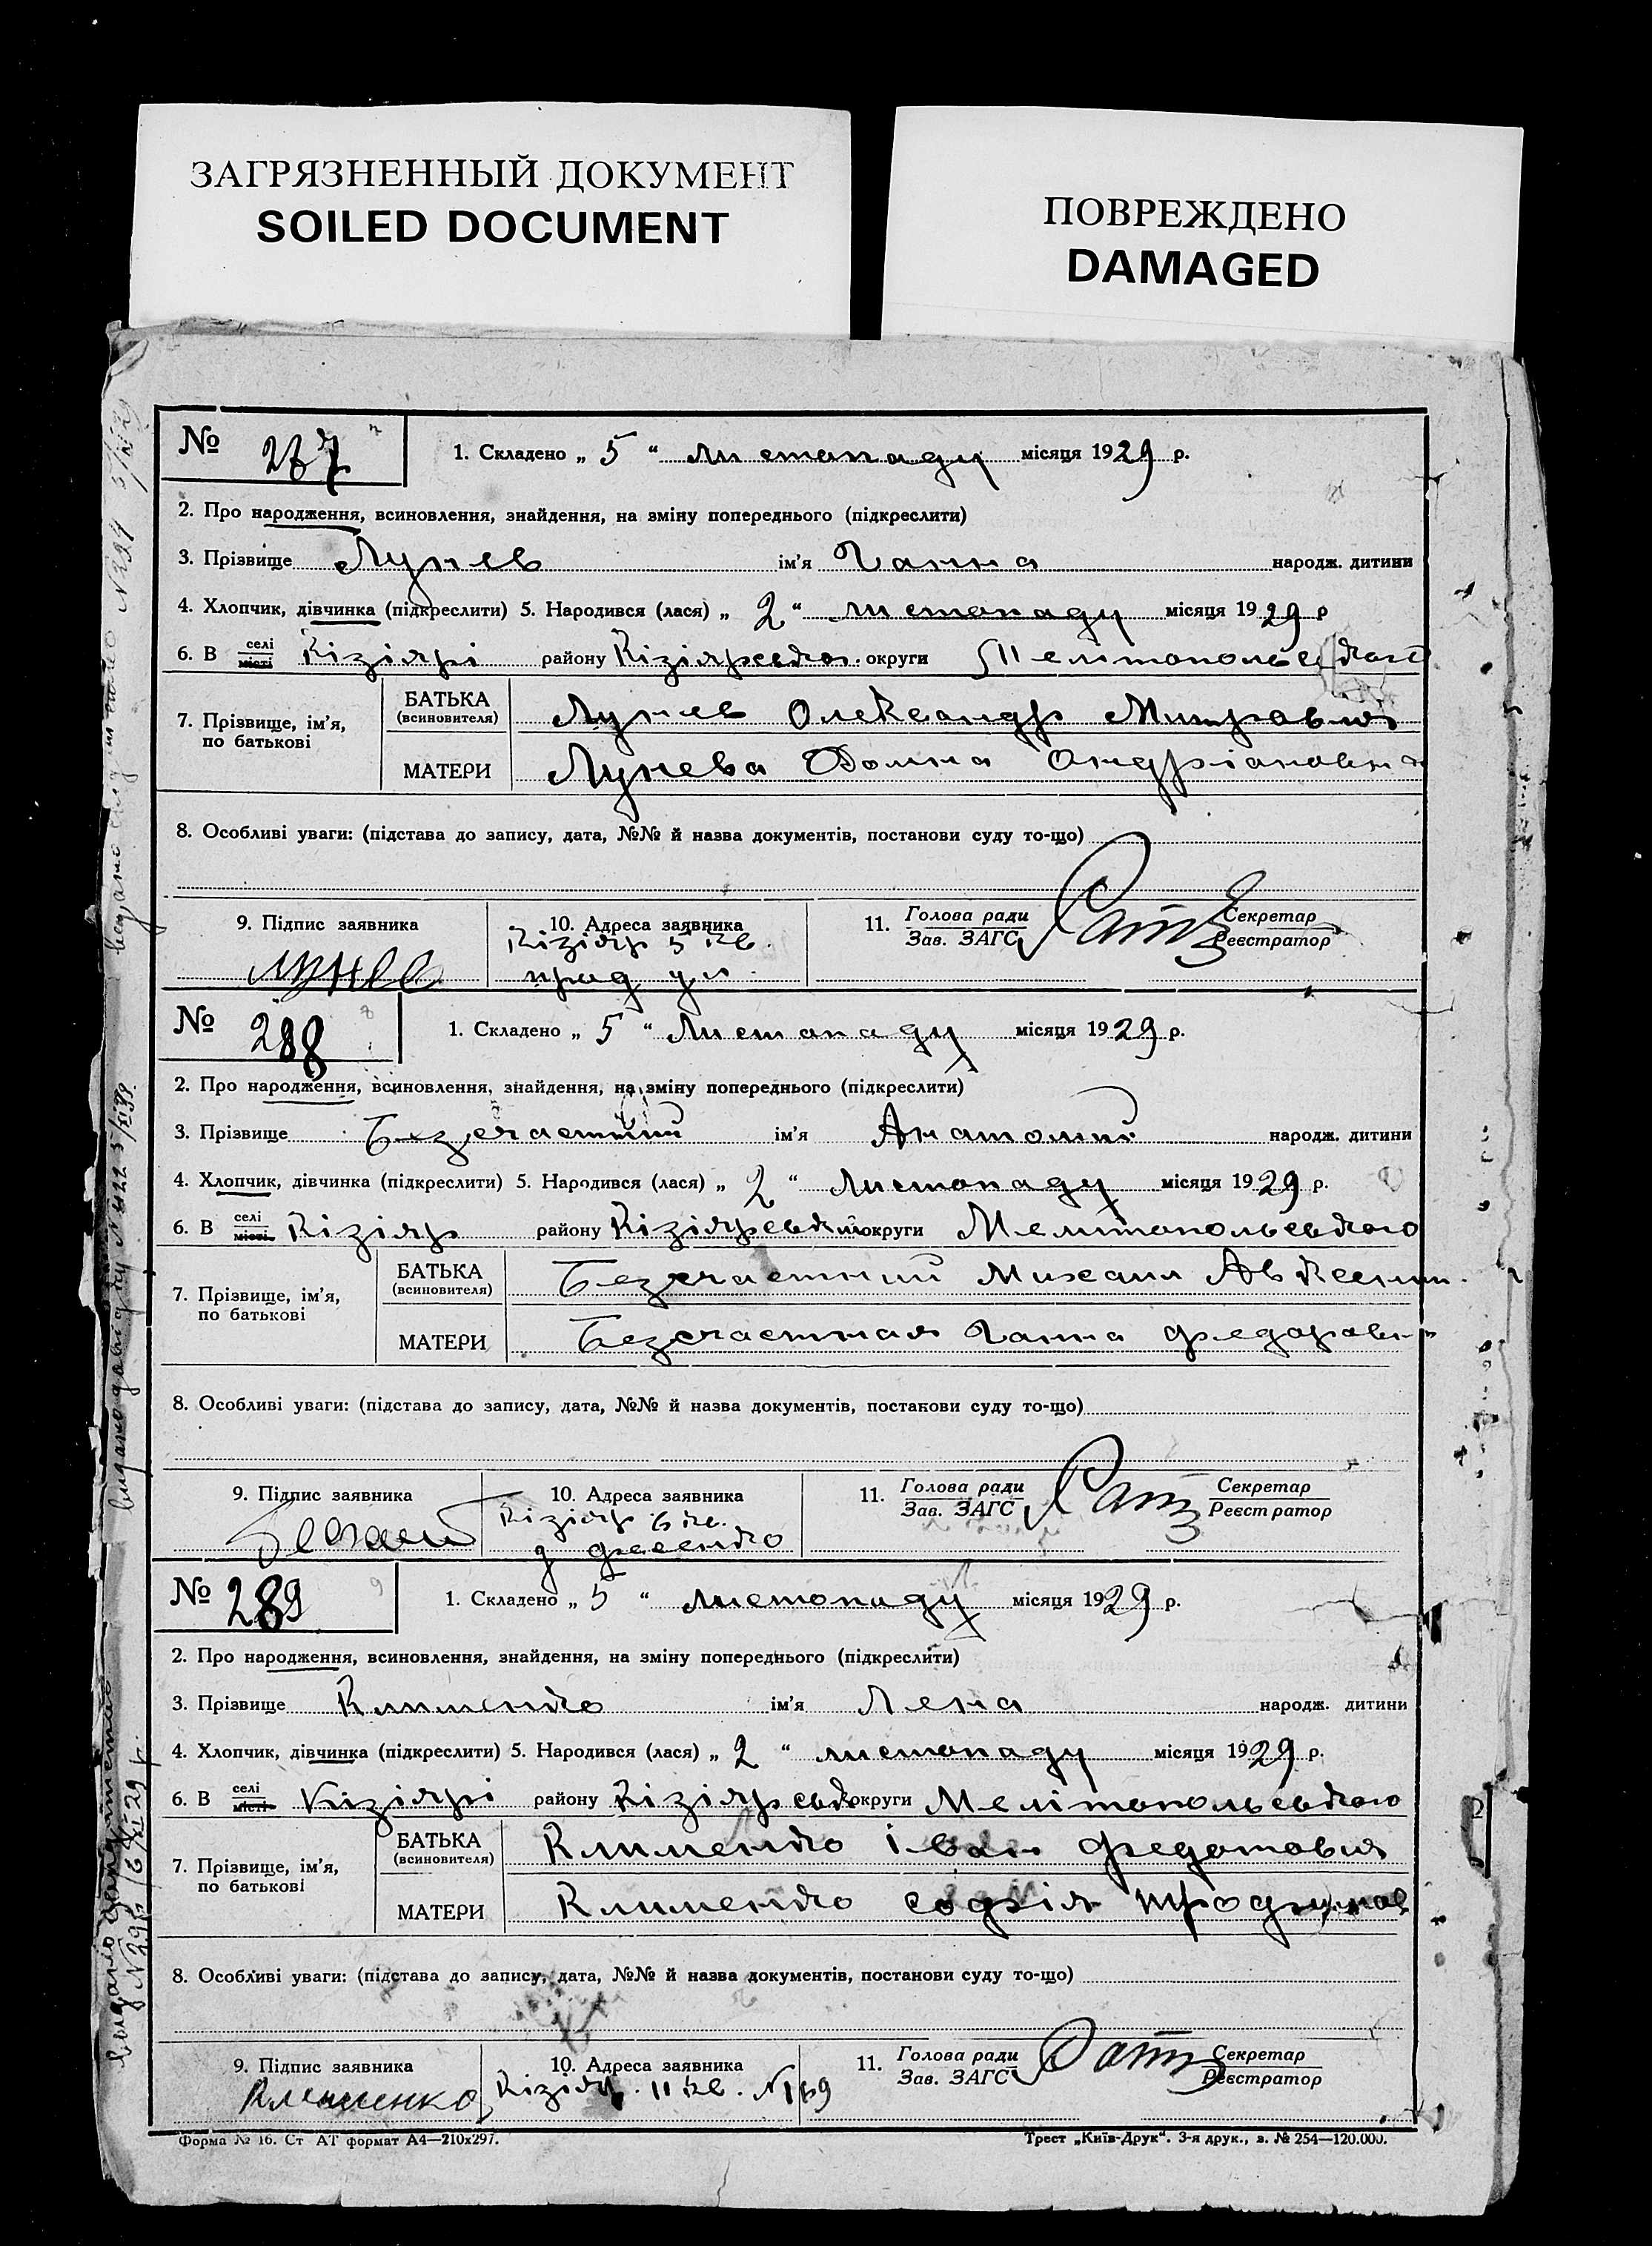 ЗАГРЯЗНЕННЫЙ ДОКУМЕНТ
SOILED DOCUMENT
ПОВРЕЖДЕНО
DAMAGED
№ 287
1. Складено „ 5 “ листопаду місяця 1929 р.
2. Про народження, всиновлення, знайдення, на зміну попереднього (підкреслити)
3. Прізвище Лунев ім'я Ганна народж. дитини
4. Хлопчик, дівчинка (підкреслити) 5. Народився (лася) „ 2 “ листопаду місяця 1929 р
6. В селі місті Кізіярі району Кізіярсько. округи
7. Прізвище, ім'я, по батькові
БАТЬКА (всиновителя) Лунев Олександр
МАТЕРИ Лунева Домна Андріановна
8. Особливі уваги: (підстава до запису, дата, №№ й назва документів, постанови суду то-що)
9. Підпис заявника
Лунев
10. Адреса заявника
Кізіяр 5 кв.
11. Голова ради Зав. ЗАГС
Секретар Реєстратор
№ 288
1. Складено „ 5 “ Листопаду місяця 1929 р.
2. Про народження, всиновлення, знайдення, на зміну попереднього (підкреслити)
3. Прізвище Безсчастний ім'я Анатолий народж. дитини
4. Хлопчик, дівчинка (підкреслити) 5. Народився (лася) „ 2 “ Листопаду місяця 1929 р.
6. В селі місті Кізіяр району округи Мелитопольського
7. Прізвище, ім'я, по батькові
БАТЬКА (всиновителя) Безсчастний Михаил
МАТЕРИ Безсчастная Ганна
8. Особливі уваги: (підстава до запису, дата, №№ й назва документів, постанови суду то-що)
9. Підпис заявника
10. Адреса заявника
Кізіяр 6 кв.
11. Голова ради Зав. ЗАГС
Секретар Реєстратор
№ 289
1. Складено „ 5 “ листопаду місяця 1929 р.
2. Про народження, всиновлення, знайдення, на зміну попереднього (підкреслити)
3. Прізвище Клименко ім'я Лена народж. дитини
4. Хлопчик, дівчинка (підкреслити) 5. Народився (лася) „ 2 “ листопаду місяця 1929 р.
6. В селі місті Кізіярі району округи Мелітопольського
7. Прізвище, ім'я, по батькові
БАТЬКА (всиновителя) Клименко Іван Федотович
МАТЕРИ Клименко Софія
8. Особливі уваги: (підстава до запису, дата, №№ й назва документів, постанови суду то-що)
9. Підпис заявника
Клименко
10. Адреса заявника
Кізіяр. 11 кв. №169
11. Голова ради Зав. ЗАГС
Секретар Реєстратор
Форма № 16. Ст АТ формат А4—210х297.
Трест „Київ-Друк“. 3-я друк., з. № 254—120.000.